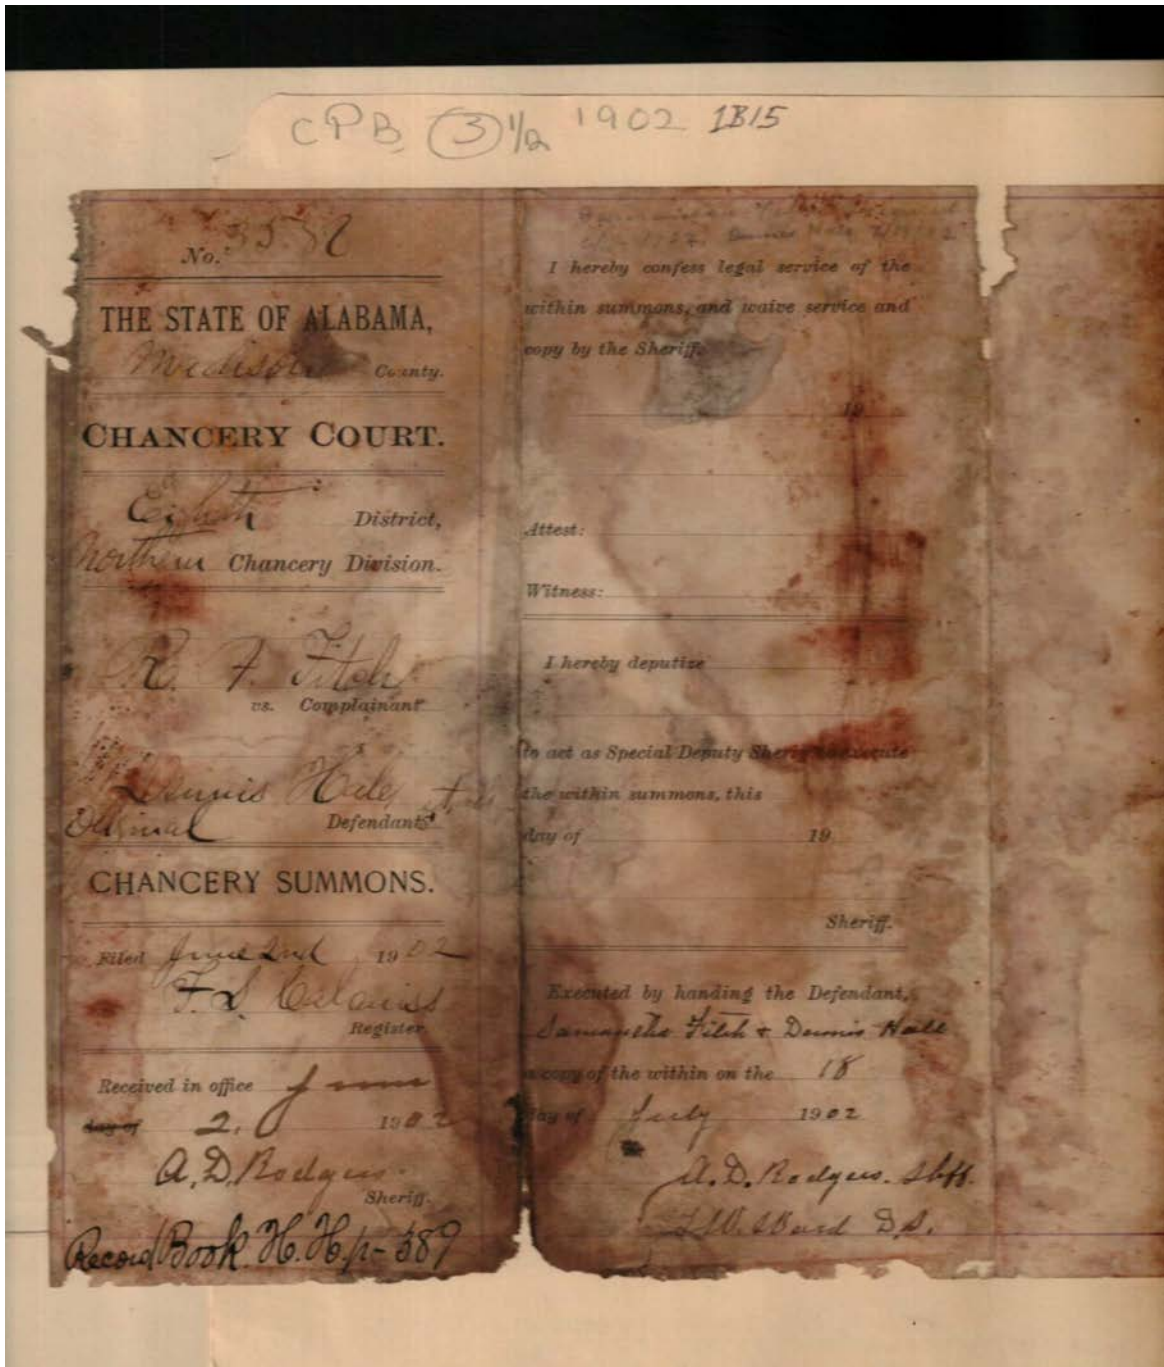 CPB (3) 1/2 1902 1B15
No.
THE STATE OF ALABAMA,
Madison County.
CHANCERY COURT.
Eighth District,
Northern Chancery Division.
R. F. Fitch
vs. Complainant
Dennis Hale
Defendants
CHANCERY SUMMONS.
Filed June 2nd 1902
Register
Received in office June
day of 2. 1902
A. D. Rodgers
Sheriff.
Record Book. H. H. p- 389
I hereby confess legal service of the
within summons, and waive service and
copy by the Sheriff.
19
Attest:
Witness:
I hereby deputize
to act as Special Deputy Sheriff to execute
the within summons, this
day of 19
Sheriff.
Executed by handing the Defendant,
Samantha Fitch & Dennis Hale
a copy of the within on the 18
day of July 1902
A. D. Rodgers. Shff.
Ward D.S.